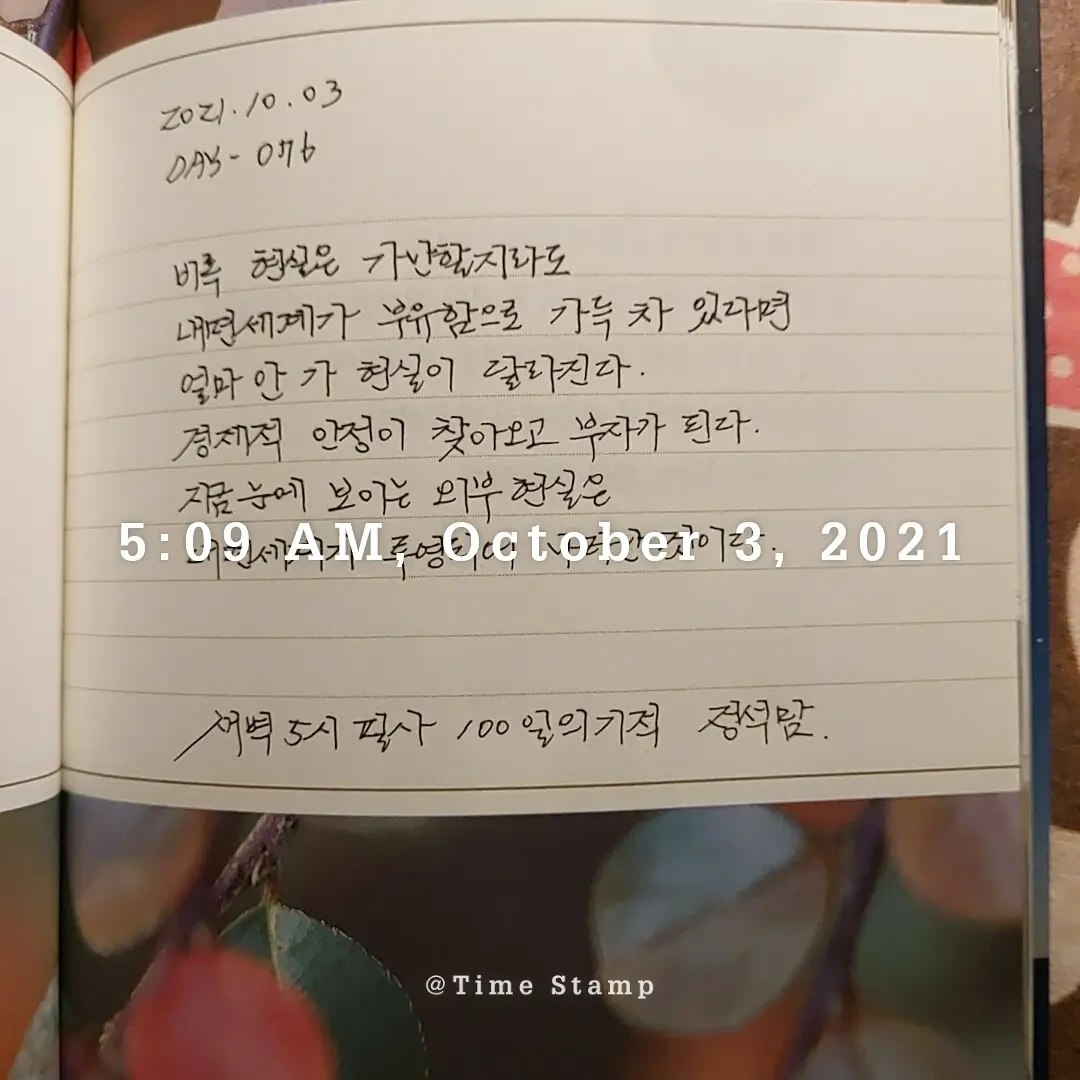 2021.10.03
DAY-076
비록 현실은 가난할지라도
내면세계가 부유함으로 가득 차 있다면
얼마 안 가 현실이 달라진다.
경제적 안정이 찾아오고 부자가 된다.
지금 눈에 보이는 외부 현실은
5:09 AM, October 3, 2021
새벽 5시 필사 100일의기적
@Time Stamp